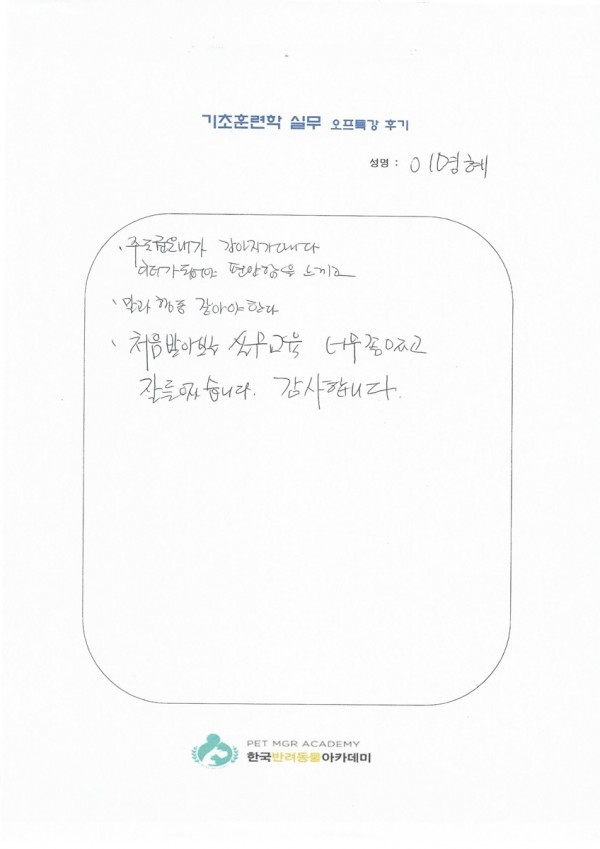 기초훈련학 실무 오프특강 후기
성명 : 이명혜
· 주도권은 내가 강아지가 아니다
리더가 되어야 편안함을 느끼고
· 말과 행동 같아야 한다
· 처음 받아보는 실무교육 너무 좋았고
잘 들었습니다. 감사합니다.
PET MGR ACADEMY
한국반려동물아카데미